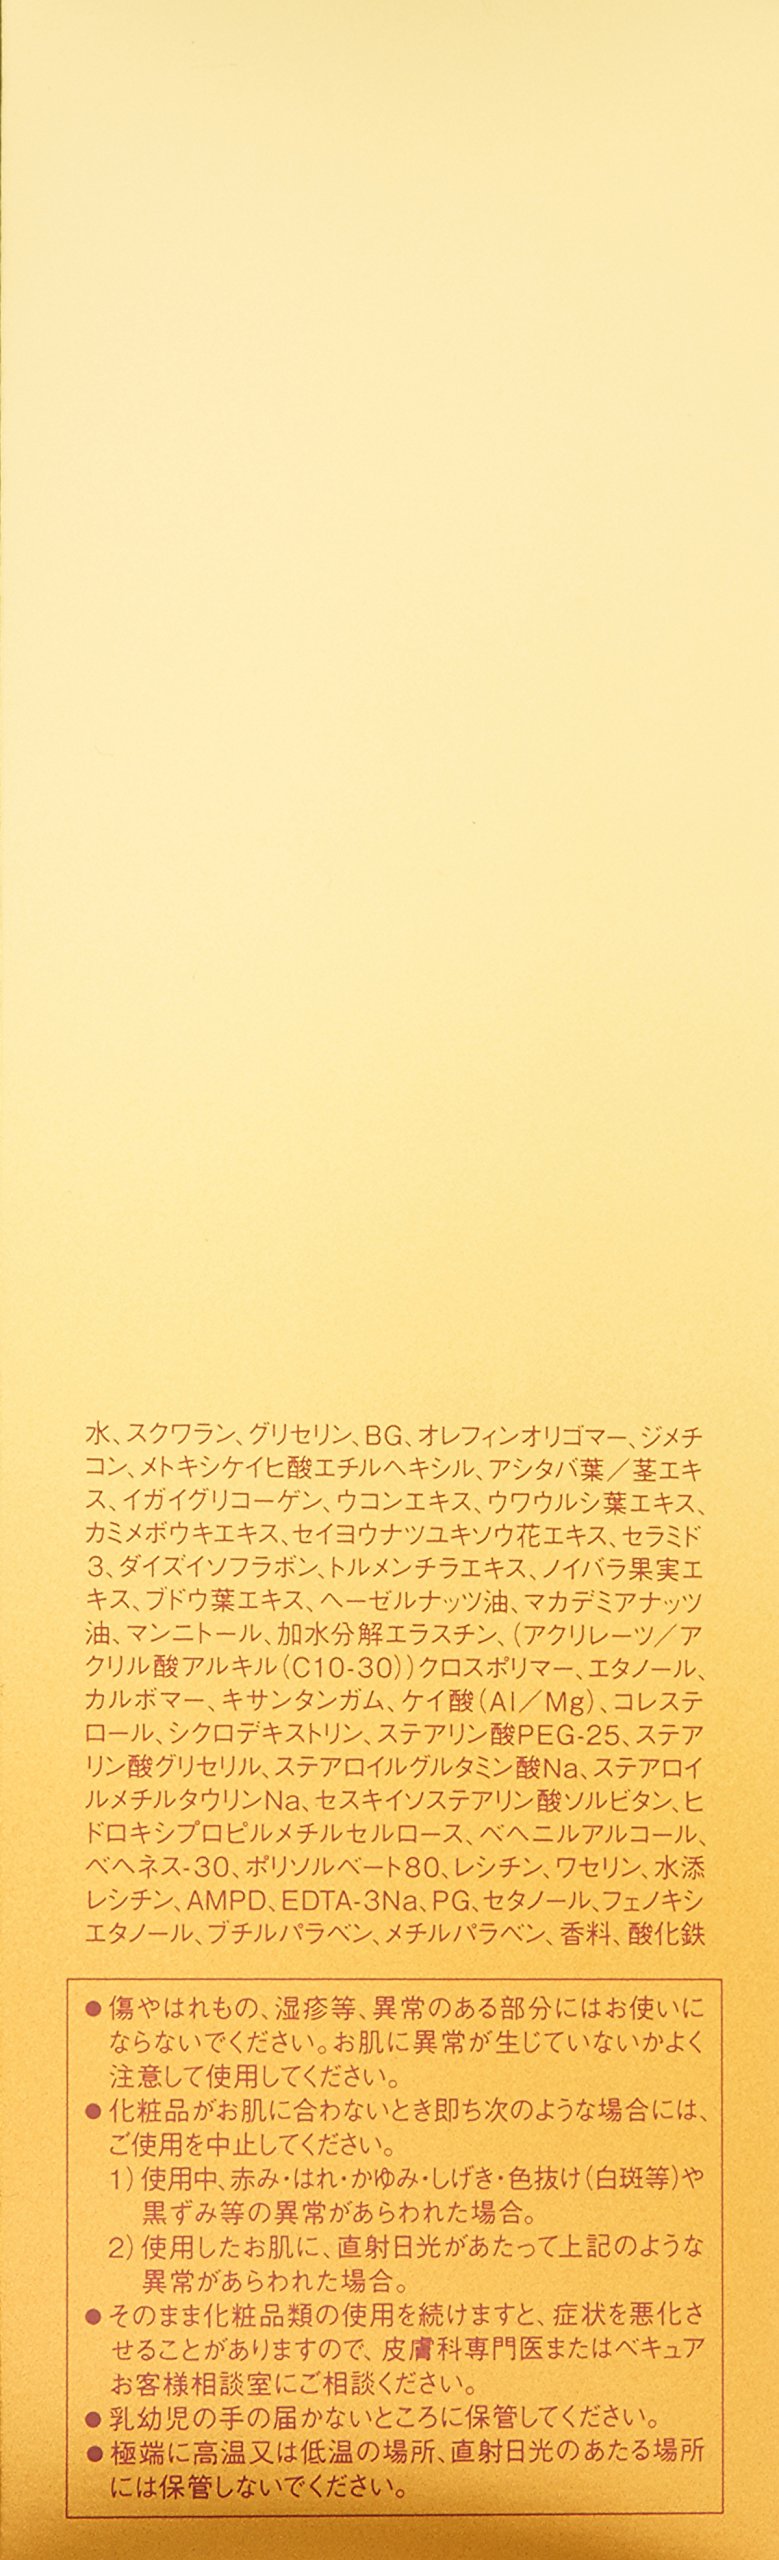 水、スクワラン、グリセリン、BG、オレフィンオリゴマー、ジメチ
コン、メトキシケイヒ酸エチルヘキシル、アシタバ葉／茎エキ
ス、イガイグリコーゲン、ウコンエキス、ウワウルシ葉エキス、
カミメボウキエキス、セイヨウナツユキソウ花エキス、セラミド
3、ダイズイソフラボン、トルメンチラエキス、ノイバラ果実エ
キス、ブドウ葉エキス、ヘーゼルナッツ油、マカデミアナッツ
油、マンニトール、加水分解エラスチン、（アクリレーツ／ア
クリル酸アルキル（C10-30））クロスポリマー、エタノール、
カルボマー、キサンタンガム、ケイ酸（Al／Mg）、コレステ
ロール、シクロデキストリン、ステアリン酸PEG-25、ステア
リン酸グリセリル、ステアロイルグルタミン酸Na、ステアロイ
ルメチルタウリンNa、セスキイソステアリン酸ソルビタン、ヒ
ドロキシプロピルメチルセルロース、ベヘニルアルコール、
ベヘネス-30、ポリソルベート80、レシチン、ワセリン、水添
レシチン、AMPD、EDTA-3Na、PG、セタノール、フェノキシ
エタノール、ブチルパラベン、メチルパラベン、香料、酸化鉄
●傷やはれもの、湿疹等、異常のある部分にはお使いに
ならないでください。お肌に異常が生じていないかよく
注意して使用してください。
●化粧品がお肌に合わないとき即ち次のような場合には、
ご使用を中止してください。
1）使用中、赤み・はれ・かゆみ・しげき・色抜け（白斑等）や
黒ずみ等の異常があらわれた場合。
2）使用したお肌に、直射日光があたって上記のような
異常があらわれた場合。
●そのまま化粧品類の使用を続けますと、症状を悪化さ
せることがありますので、皮膚科専門医またはベキュア
お客様相談室にご相談ください。
●乳幼児の手の届かないところに保管してください。
●極端に高温又は低温の場所、直射日光のあたる場所
には保管しないでください。